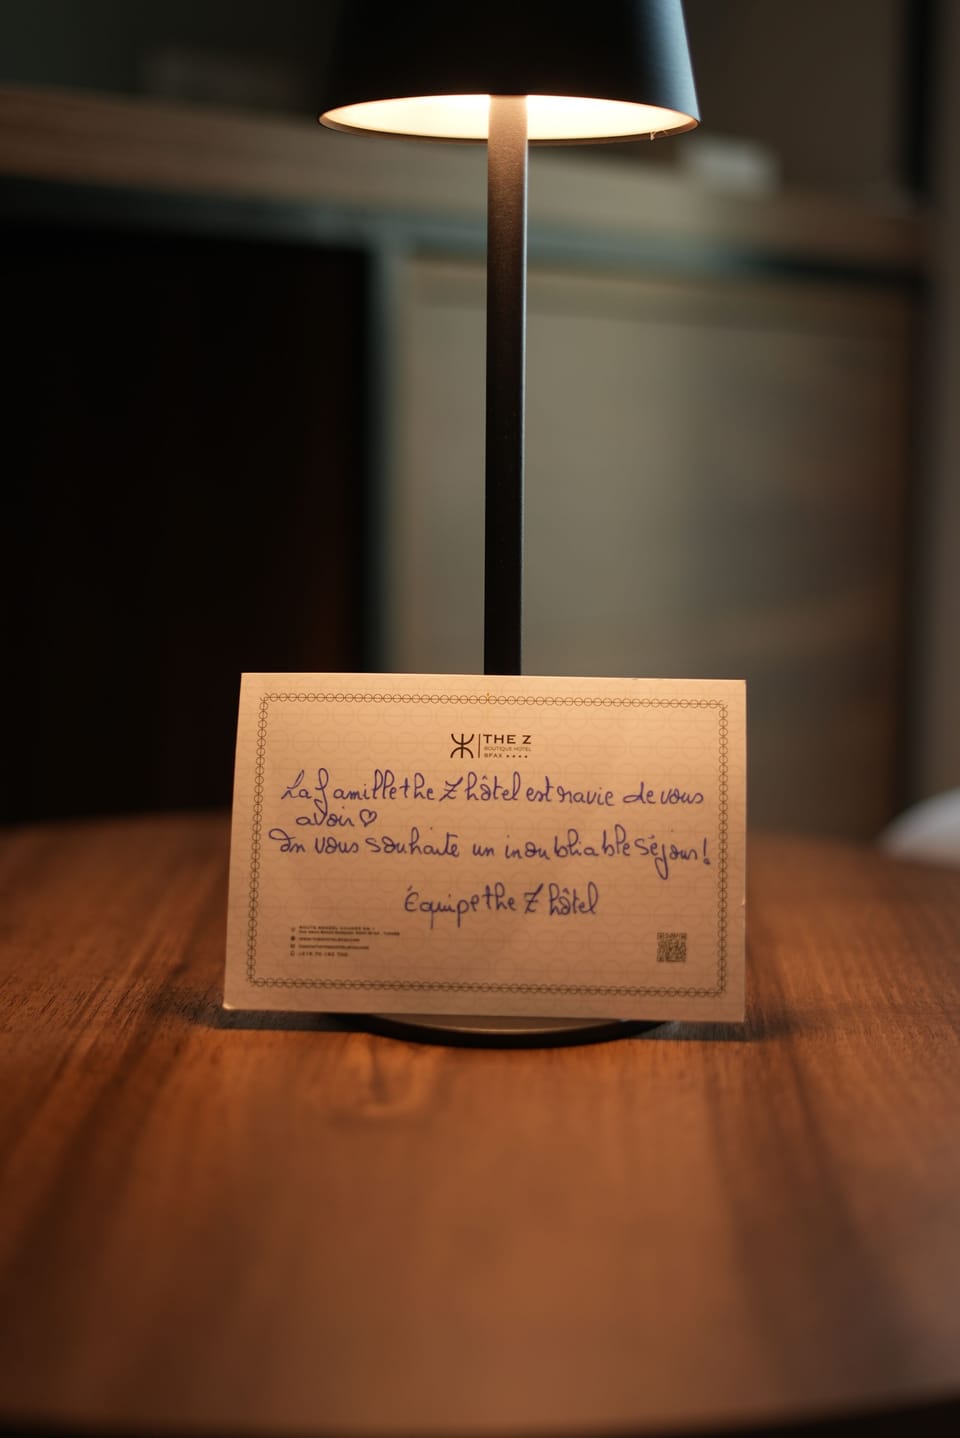 THE Z
BOUTIQUE HOTEL
SFAX ★★★★
La famille the Z hôtel est ravie de vous
avoir ♡
On vous souhaite un inoubliable séjour!
Équipe the Z hôtel